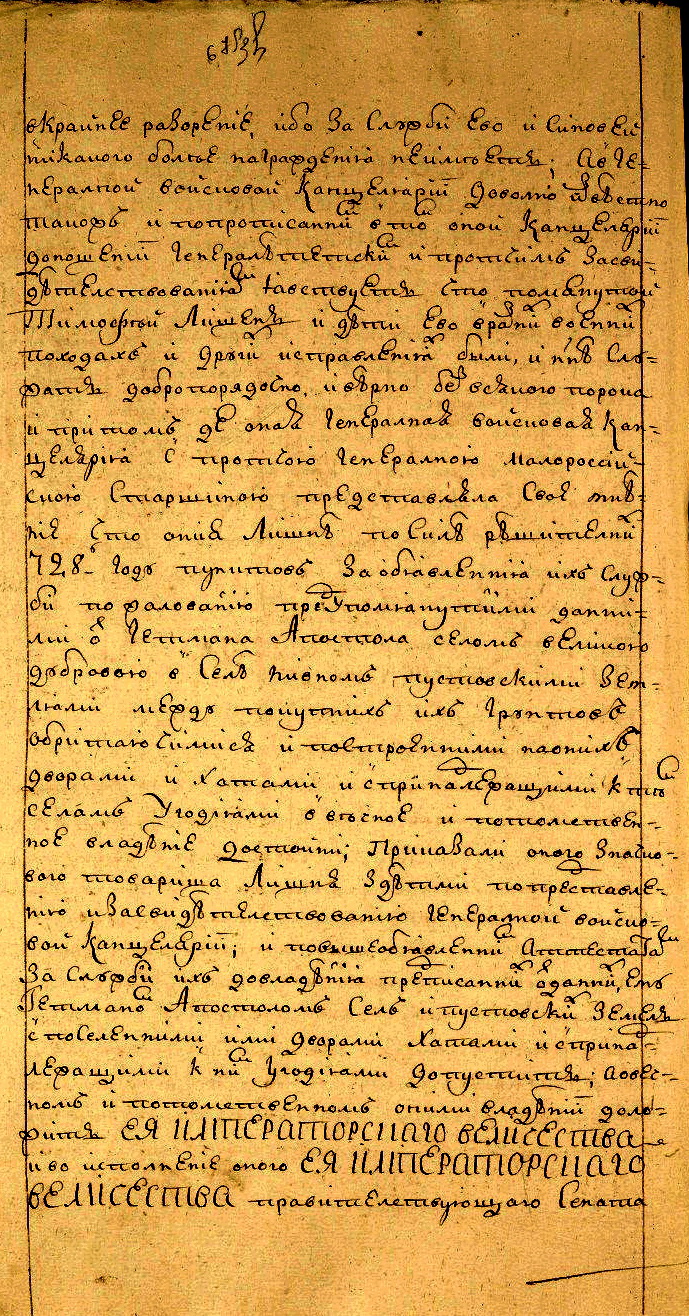 вкрайнее разорение, ибо за службы ево и синовей
никакого болше награждения неимеется; авъ ге-
нералной войсковой канцелярїи доволно известно
такожъ и попрописаннимъ втой оной канцелярїи
доношенїи генералнетескимъ и протчимъ засви-
детелствованиямъ явствуется что помянутой
Тимофей Лишень и дѣти ево вразнихъ воєннихъ
походахъ и другихъ исправленияхъ были, и ннѣ слу-
жатъ добропорядочно, и вѣрно безъ всякого порока
и притомъ де оная генералная войсковая кан-
целярия с протчего генералного малороссїй-
ского старшиного представляла свое мнѣ-
ние что ония Лишнѣ по силѣ рѣшителнихъ
728 году пунктовъ за объявленния ихъ служ-
би пожалованию предупомянутими данни-
ми от гетмана Апостола селомъ великого
дубровою в селѣ пивномъ пустовскими зем-
лями между покупнихъ ихъ грунтовъ
обритаючимися и повстроенними наонихъ
дворами и хатами и спринадлежащими ктимъ
селамъ угодиями ввечное и потомствен-
ное владѣние достойни; приказали оного значко-
вого товариша Лишня здѣтми попреставле-
нию изасвидѣтелствованию генералной войско-
вой канцелярїи; и повышеобъявленнимъ аттестатамъ
за службы ихъ довладѣния преписаннихъ одданнихъ емъ
гетманомъ Апостоломъ селъ ипустовскихъ земель
споселенними ими дворами хатами и сприна-
лежащими к нимъ угодиями допустить; аовеч-
номъ и потомственномъ оними владѣнии доло-
жить ЕЯ ИМПЕРАТОРСКАГО ВЕЛИЧЕСТВА
и во исполнение оного ЕЯ ИМПЕРАТОРСКАГО
ВЕЛИЧЕСТВА правителствующаго Сената